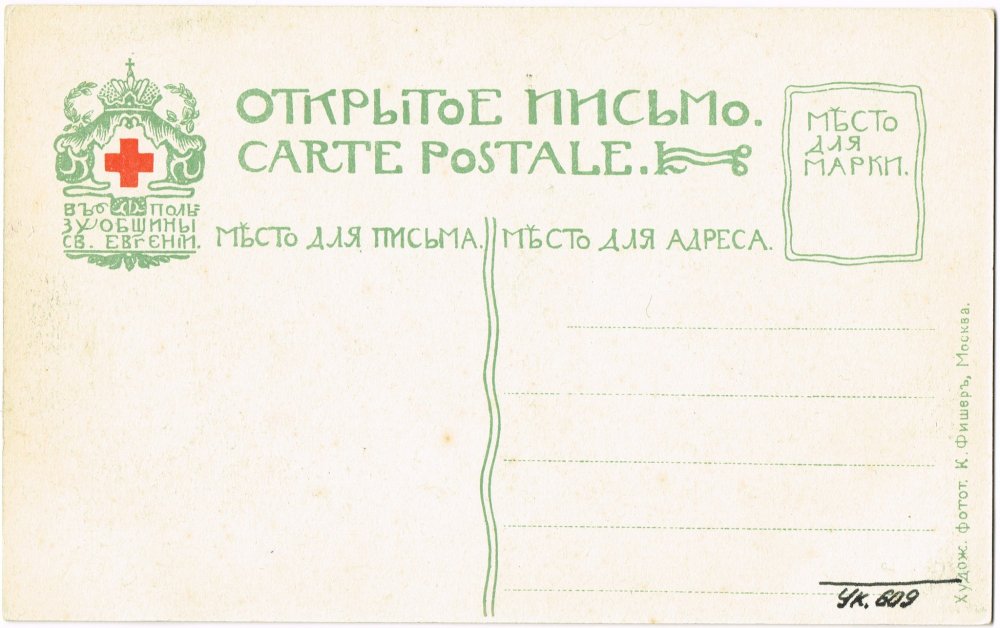 ОТКРЫТОЕ ПИСЬМО.
CARTE POSTALE.
МѢСТО
ДЛЯ
МАРКИ.
ВЪ ПОЛЬ-
ЗУ ОБЩИНЫ
СВ. ЕВГЕНІИ.
МѢСТО ДЛЯ ПИСЬМА.
МѢСТО ДЛЯ АДРЕСА.
Худож. фотот. К. Фишеръ, Москва.
УК. 609